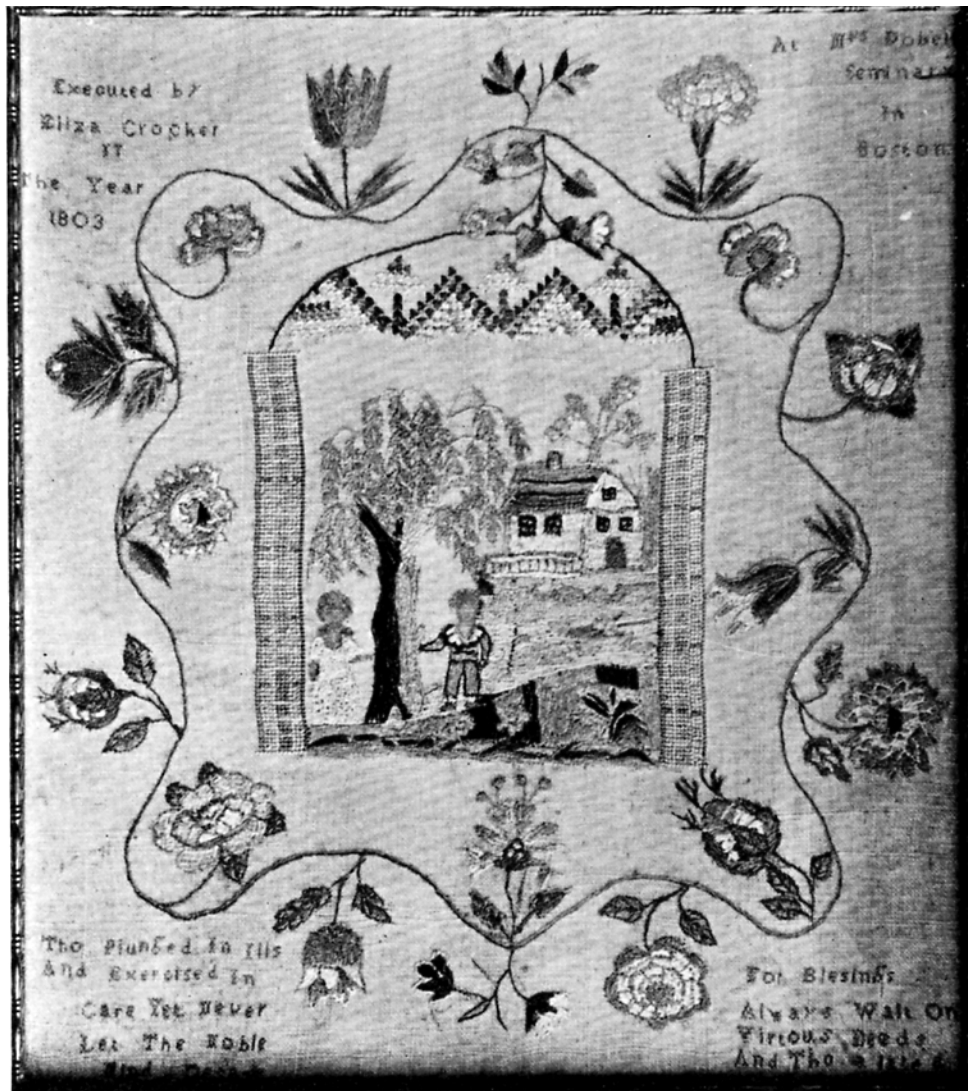 Executed by
Eliza Crocker
IT
The Year
1803
At Mrs Dobell
Seminary
in
Boston
Tho Plunged In Ills
And Exercised In
Care Yet Never
Let The Noble
Mind
For Blesings
Always Wait On
Virtous Deeds
And Tho a late